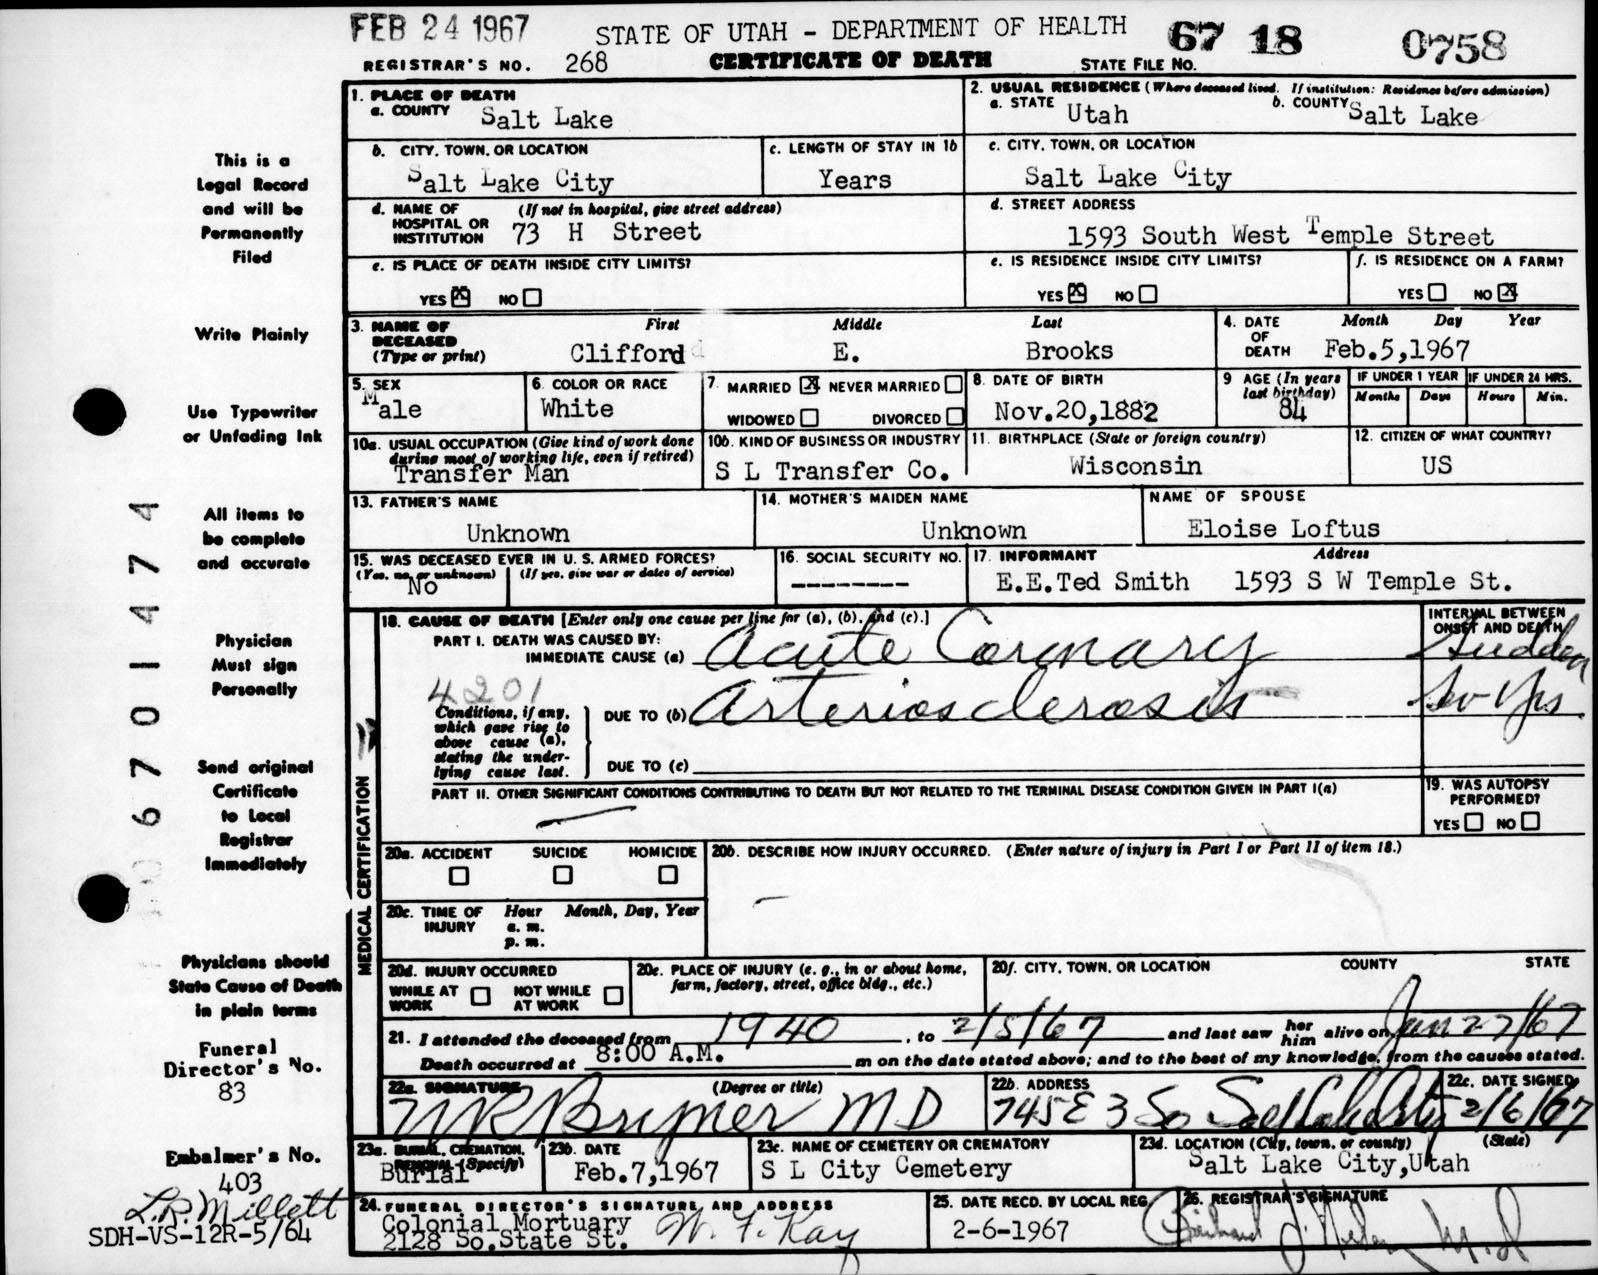 FEB 24 1967 STATE OF UTAH - DEPARTMENT OF HEALTH 67 18 0758
REGISTRAR'S NO. 268 CERTIFICATE OF DEATH STATE FILE NO.
1. PLACE OF DEATH
a. COUNTY Salt Lake
2. USUAL RESIDENCE (Where deceased lived. If institution: Residence before admission)
a. STATE Utah b. COUNTY Salt Lake
b. CITY, TOWN, OR LOCATION Salt Lake City
c. LENGTH OF STAY IN 1b Years
c. CITY, TOWN, OR LOCATION Salt Lake City
d. NAME OF HOSPITAL OR INSTITUTION (If not in hospital, give street address) 73 H Street
d. STREET ADDRESS 1593 South West Temple Street
e. IS PLACE OF DEATH INSIDE CITY LIMITS? YES X NO
e. IS RESIDENCE INSIDE CITY LIMITS? YES X NO
f. IS RESIDENCE ON A FARM? YES NO X
3. NAME OF DECEASED (Type or print) First Middle Last
Clifford E. Brooks
4. DATE OF DEATH Month Day Year
Feb.5,1967
5. SEX Male
6. COLOR OR RACE White
7. MARRIED X NEVER MARRIED
WIDOWED DIVORCED
8. DATE OF BIRTH Nov.20,1882
9 AGE (In years last birthday) 84
IF UNDER 1 YEAR Months Days
IF UNDER 24 HRS. Hours Min.
10a. USUAL OCCUPATION (Give kind of work done during most of working life, even if retired)
Transfer Man
10b. KIND OF BUSINESS OR INDUSTRY S L Transfer Co.
11. BIRTHPLACE (State or foreign country) Wisconsin
12. CITIZEN OF WHAT COUNTRY? US
13. FATHER'S NAME Unknown
14. MOTHER'S MAIDEN NAME Unknown
NAME OF SPOUSE Eloise Loftus
15. WAS DECEASED EVER IN U. S. ARMED FORCES?
(Yes, no, or unknown) (If yes, give war or dates of service)
No
16. SOCIAL SECURITY NO. ---------
17. INFORMANT Address
E.E.Ted Smith 1593 S W Temple St.
MEDICAL CERTIFICATION
18. CAUSE OF DEATH [Enter only one cause per line for (a), (b), and (c).]
PART I. DEATH WAS CAUSED BY:
IMMEDIATE CAUSE (a) Acute Coronary
INTERVAL BETWEEN ONSET AND DEATH
Sudden
4201
Conditions, if any, which gave rise to above cause (a), stating the underlying cause last.
DUE TO (b) Arteriosclerosis
Yrs
DUE TO (c)
PART II. OTHER SIGNIFICANT CONDITIONS CONTRIBUTING TO DEATH BUT NOT RELATED TO THE TERMINAL DISEASE CONDITION GIVEN IN PART I(a)
19. WAS AUTOPSY PERFORMED?
YES NO
20a. ACCIDENT SUICIDE HOMICIDE
20b. DESCRIBE HOW INJURY OCCURRED. (Enter nature of injury in Part I or Part II of item 18.)
20c. TIME OF INJURY Hour Month, Day, Year
a. m.
p. m.
20d. INJURY OCCURRED
WHILE AT WORK NOT WHILE AT WORK
20e. PLACE OF INJURY (e. g., in or about home, farm, factory, street, office bldg., etc.)
20f. CITY, TOWN, OR LOCATION COUNTY STATE
21. I attended the deceased from 1940, to 2/5/67 and last saw her him alive on Jan 27/67
Death occurred at 8:00 A.M. m on the date stated above; and to the best of my knowledge, from the causes stated.
22a. SIGNATURE (Degree or title) M D
22b. ADDRESS 745 E 3 So Salt Lake City
22c. DATE SIGNED 2/6/67
23a. BURIAL, CREMATION, REMOVAL (Specify) Burial
23b. DATE Feb.7,1967
23c. NAME OF CEMETERY OR CREMATORY S L City Cemetery
23d. LOCATION (City, town, or county) (State)
Salt Lake City,Utah
24. FUNERAL DIRECTOR'S SIGNATURE AND ADDRESS
Colonial Mortuary W. F. Kay
2128 So.State St.
25. DATE RECD. BY LOCAL REG. 2-6-1967
26. REGISTRAR'S SIGNATURE
This is a
Legal Record
and will be
Permanently
Filed
Write Plainly
Use Typewriter
or Unfading Ink
All items to
be complete
and accurate
Physician
Must sign
Personally
Send original
Certificate
to Local
Registrar
Immediately
Physicians should
State Cause of Death
in plain terms
Funeral
Director's No.
83
Embalmer's No.
403
L.R. Millett
SDH-VS-12R-5/64
6701474